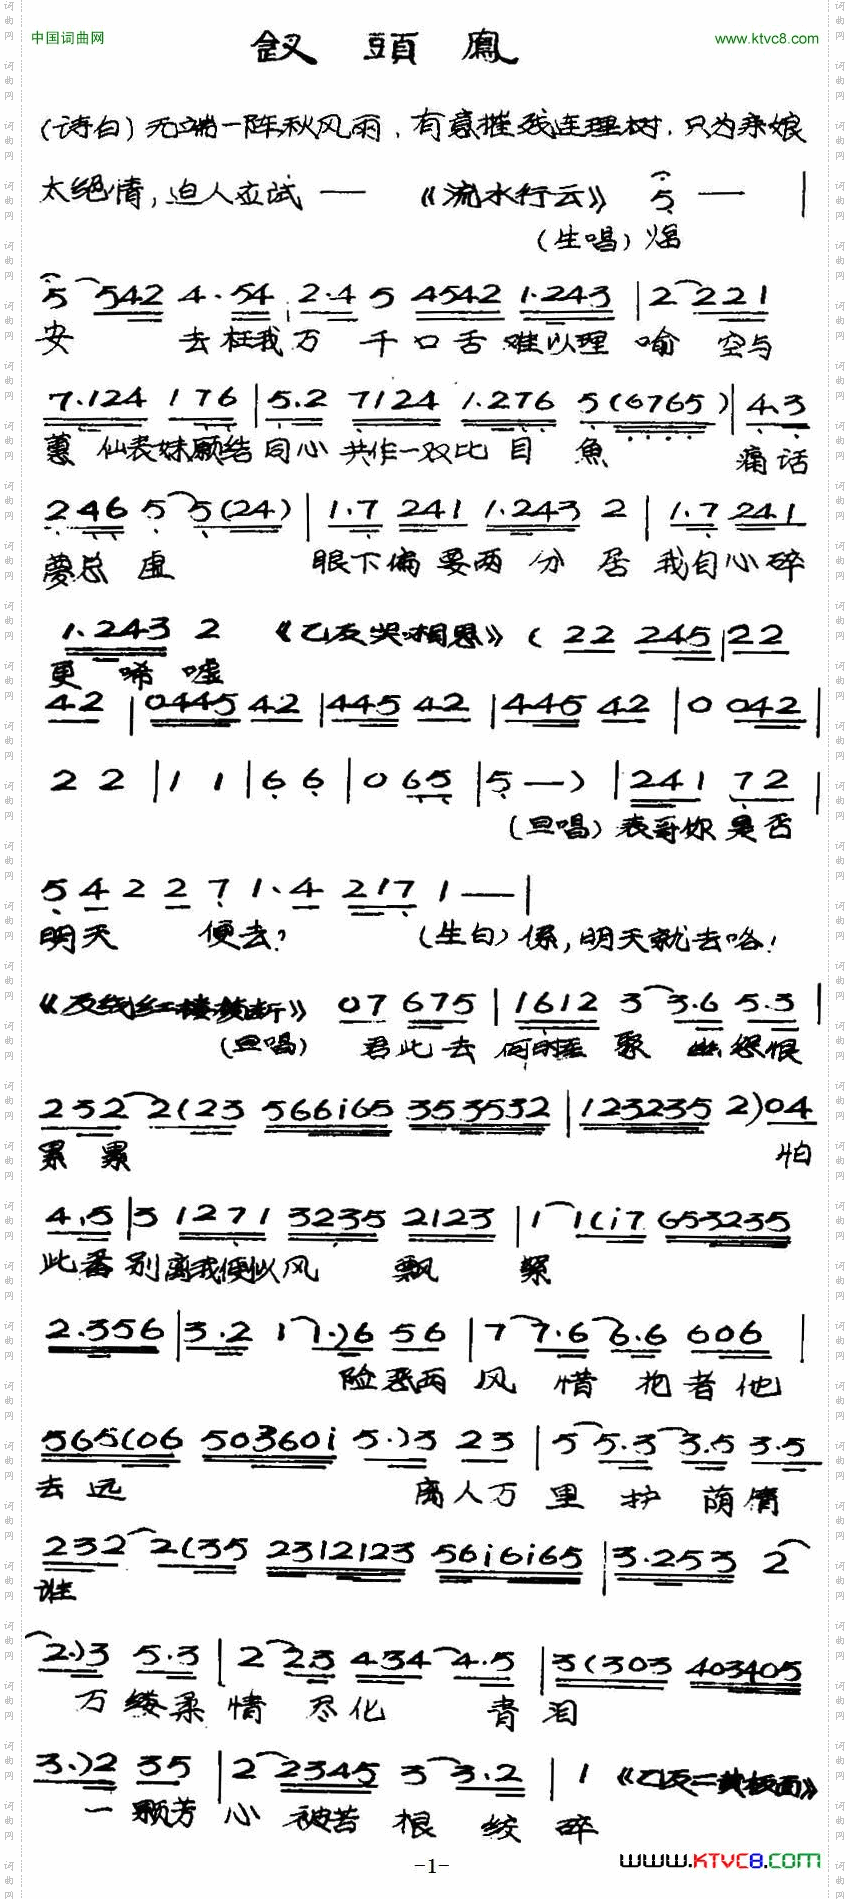 中国词曲网
釵 頭 鳳
www.ktvc8.com
(诗白) 无端一阵秋风雨, 有意摧残连理树. 只为亲娘
太绝情, 迫人应试 — 《流水行云》 5 — |
(生唱)
5 542 4.54 2.4 5 4542 1.243 | 2 221
安 去枉我万 千口舌难以理 喻 空与
7.124 176 | 5.2 7124 1.276 5(6765) | 4.3
蕙 仙表妹愿结同心共作一双比目 魚 痛话
246 5 5(24) | 1.7 241 1.243 2 | 1.7 241
夢总 虚 眼下偏 要两 分 居 我自心碎
1.243 2 《乙反哭相思》 (22 245 | 22
更 唏 嘘
42 | 0445 42 | 445 42 | 445 42 | 0 042 |
2 2 | 1 1 | 6 6 | 0 65 | 5 —) | 241 72 |
(旦唱) 表哥你 是否
5 4 2 2 7 1.4 217 1 — |
明天 便去? (生白) 係, 明天就去咯!
《反线红楼梦断》 07 675 | 1612 3 3.6 5.3 |
(旦唱) 君此去 何时至 聚 幽怨恨
232 2(23 566i65 353532 | 123235 2)04
累 累 怕
4.5 | 3 1271 3235 2123 | 1 1(i7 653235
此番 别离我便似风 飘 絮
2.356 | 3.2 1 1.)6 56 | 7 7.6 6.6 606 |
险恶两 风 惜 抱者他
565(06 50360i 5.)3 23 | 5 5.3 3.5 3.5
去 远 离人万 里 护 荫 情
232 2(35 2312123 56i6i65 | 3.253 2
谁
2.)3 5.3 | 2 2.3 434 4.5 | 3(303 403405
万 缕柔 情 尽化 青 泪
3.)2 35 | 2 2345 3 3.2 | 1 《乙反二黄板面》
一 颗芳 心 被苦 根 绞 碎
-1-
www.KTVC8.com